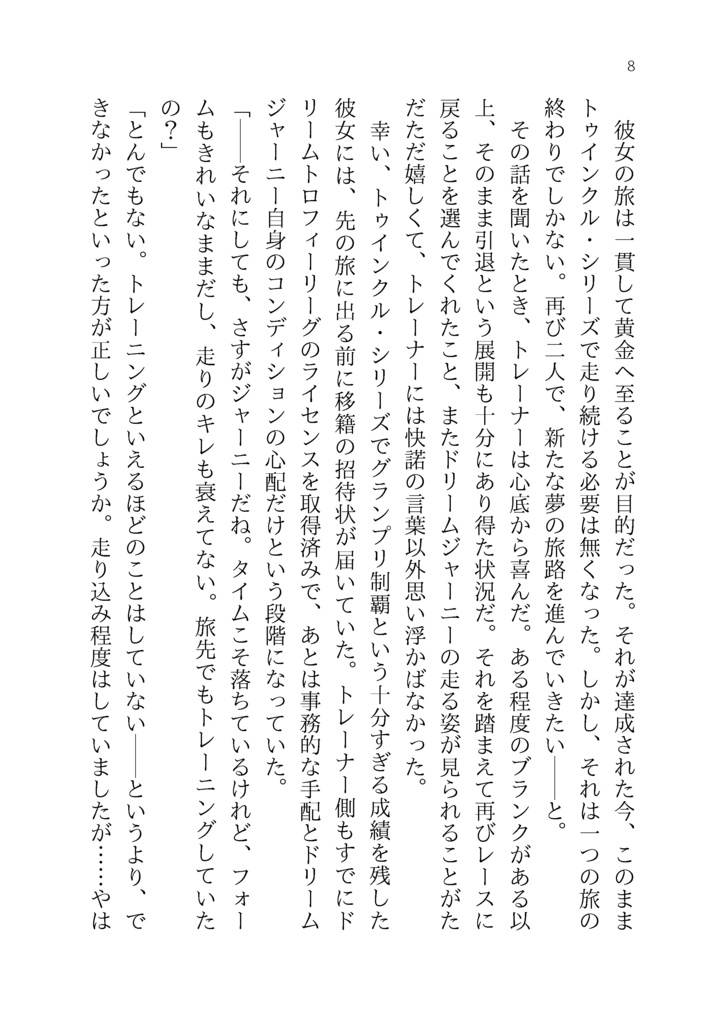 8
彼女の旅は一貫して黄金へ至ることが目的だった。それが達成された今、このまま
トゥインクル・シリーズで走り続ける必要は無くなった。しかし、それは一つの旅の
終わりでしかない。再び二人で、新たな夢の旅路を進んでいきたい――と。
その話を聞いたとき、トレーナーは心底から喜んだ。ある程度のブランクがある以
上、そのまま引退という展開も十分にあり得た状況だ。それを踏まえて再びレースに
戻ることを選んでくれたこと、またドリームジャーニーの走る姿が見られることがた
だただ嬉しくて、トレーナーには快諾の言葉以外思い浮かばなかった。
幸い、トゥインクル・シリーズでグランプリ制覇という十分すぎる成績を残した
彼女には、先の旅に出る前に移籍の招待状が届いていた。トレーナー側もすでにド
リームトロフィーリーグのライセンスを取得済みで、あとは事務的な手配とドリーム
ジャーニー自身のコンディションの心配だけという段階になっていた。
「――それにしても、さすがジャーニーだね。タイムこそ落ちているけれど、フォー
ムもきれいなままだし、走りのキレも衰えてない。旅先でもトレーニングしていた
の？」
「とんでもない。トレーニングといえるほどのことはしていない――というより、で
きなかったといった方が正しいでしょうか。走り込み程度はしていましたが……やは